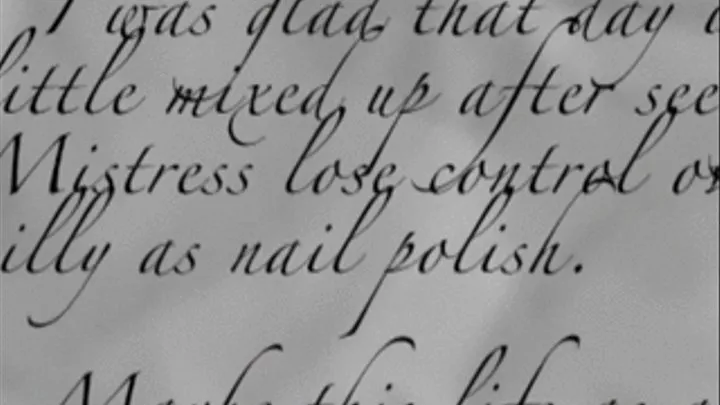 I was glad that day
little mixed up after see
Mistress lose control
illy as nail polish.
Maybe this life